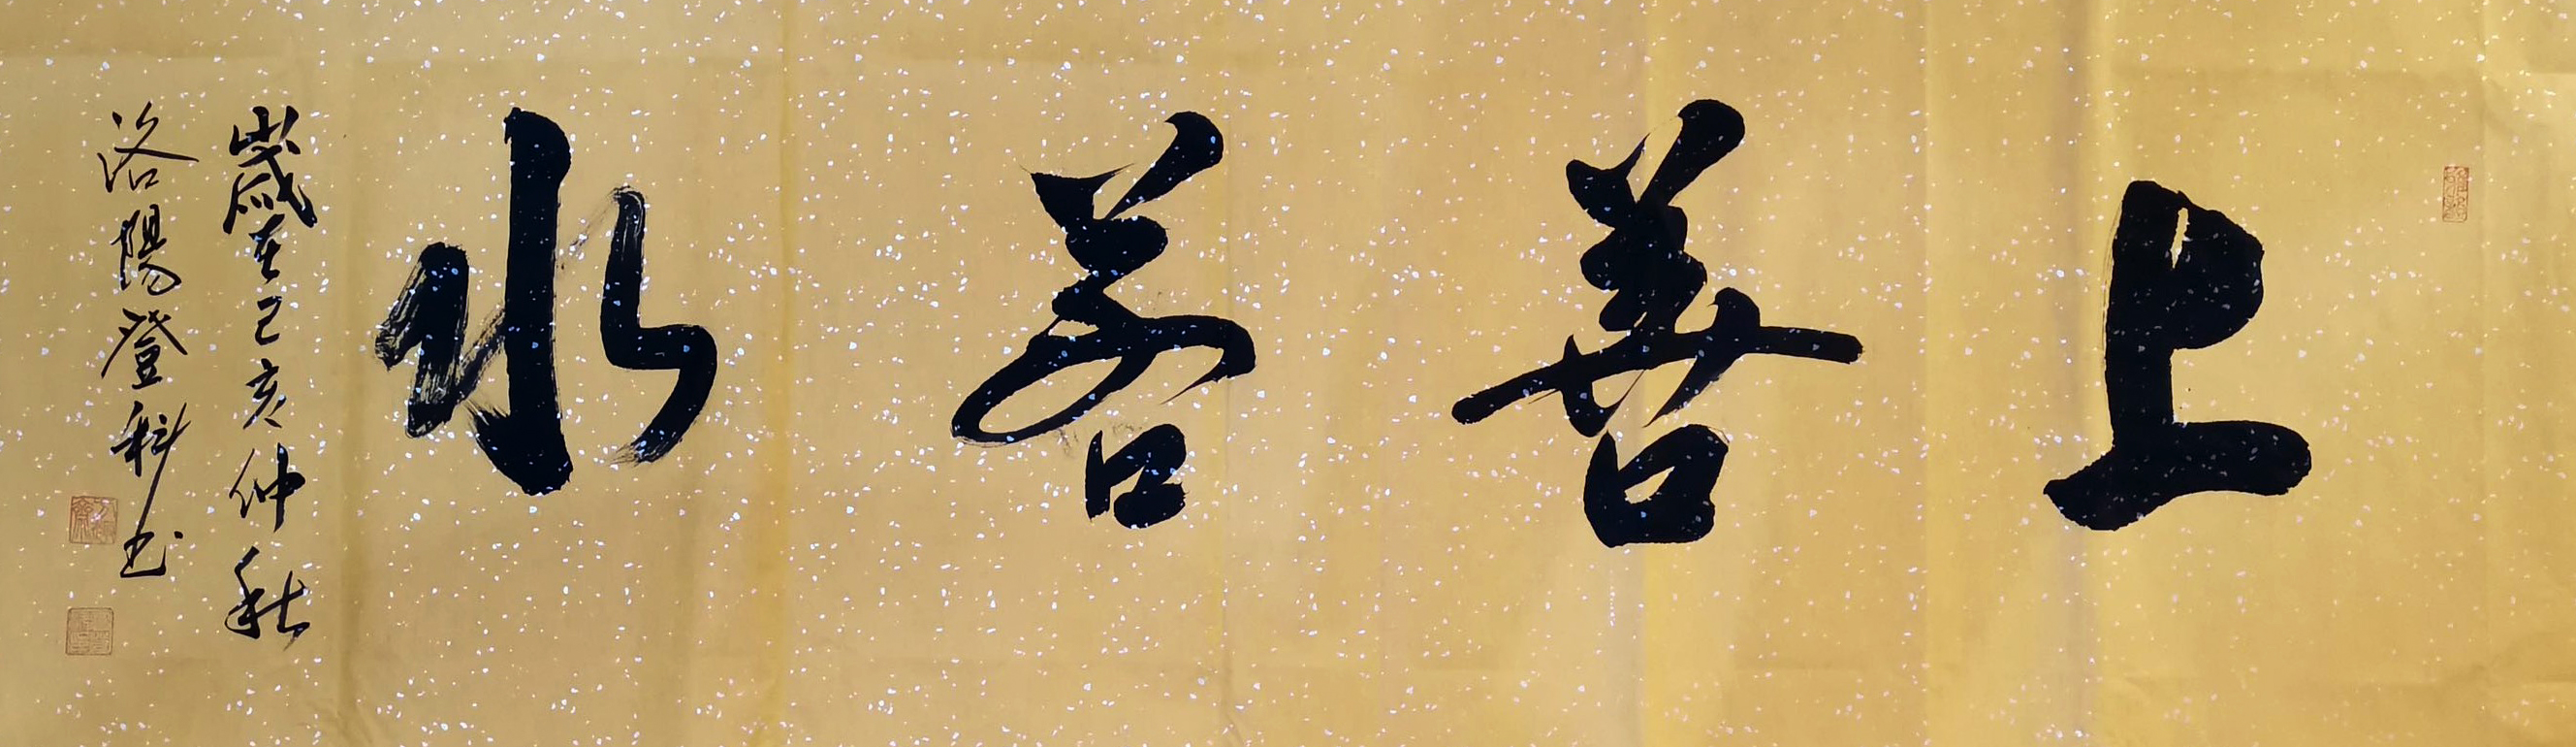 上善若水
歲在己亥仲秋
洛陽登科书